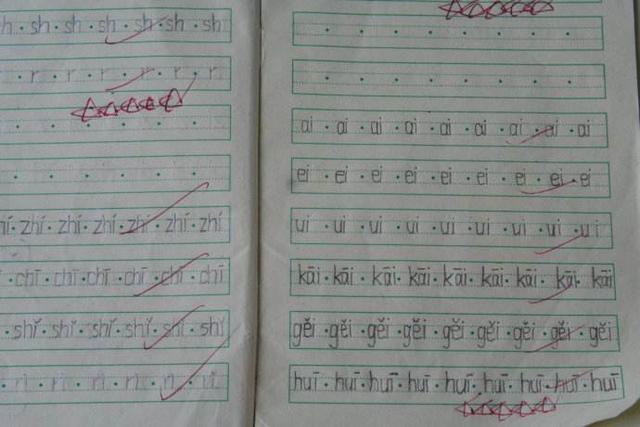 h · sh · sh · sh · sh · sh · sh
r · r · r · r · r · r
hí · zhí · zhí · zhí · zhí · zhí · zhí
· chī · chī · chī · chī · chī · chī
· shǐ · shǐ · shǐ · shǐ · shǐ · shǐ
· rì · rì · rì · rì · rì · rì
ai · ai · ai · ai · ai · ai · ai · ai · ai
ei · ei · ei · ei · ei · ei · ei · ei · ei
ui · ui · ui · ui · ui · ui · ui · ui · ui
kāi · kāi · kāi · kāi · kāi · kāi · kāi · kāi · kāi
gěi · gěi · gěi · gěi · gěi · gěi · gěi · gěi · gěi
huī · huī · huī · huī · huī · huī · huī · huī · huī